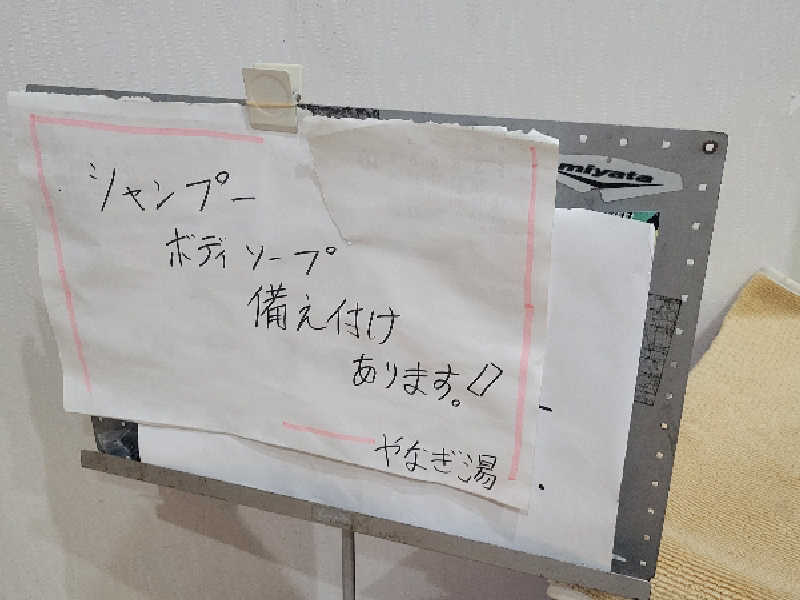 シャンプー
ボディソープ
備え付け
あります。!!
やなぎ湯
miyata